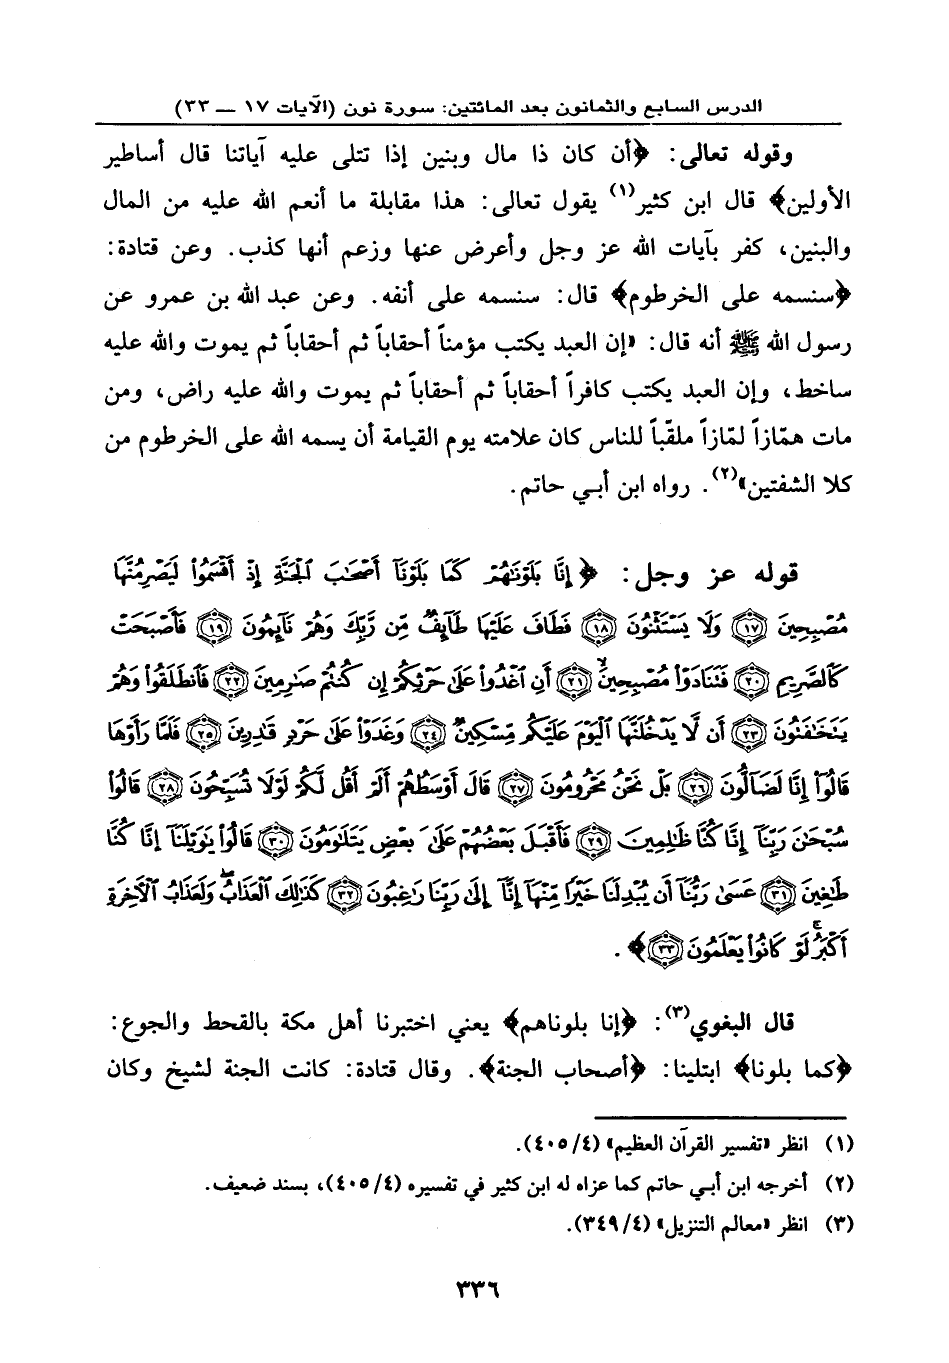 الدرس السابع والثمانون بعد المائتين: سورة نون (الآيات ١٧ — ٣٣)
وقوله تعالى: ﴿أن كان ذا مال وبنين إذا تتلى عليه آياتنا قال أساطير
الأولين﴾ قال ابن كثير(١) يقول تعالى: هذا مقابلة ما أنعم الله عليه من المال
والبنين، كفر بآيات الله عز وجل وأعرض عنها وزعم أنها كذب. وعن قتادة:
﴿سنسمه على الخرطوم﴾ قال: سنسمه على أنفه. وعن عبد الله بن عمرو عن
رسول الله ﷺ أنه قال: «إن العبد يكتب مؤمناً أحقاباً ثم أحقاباً ثم يموت والله عليه
ساخط، وإن العبد يكتب كافراً أحقاباً ثم أحقاباً ثم يموت والله عليه راض، ومن
مات همّازاً لمّازاً ملقّباً للناس كان علامته يوم القيامة أن يسمه الله على الخرطوم من
كلا الشفتين»(٢). رواه ابن أبي حاتم.
قوله عز وجل: ﴿إِنَّا بَلَوْنَٰهُمْ كَمَا بَلَوْنَآ أَصْحَٰبَ ٱلْجَنَّةِ إِذْ أَقْسَمُوا۟ لَيَصْرِمُنَّهَا
مُصْبِحِينَ ﴿١٧﴾ وَلَا يَسْتَثْنُونَ ﴿١٨﴾ فَطَافَ عَلَيْهَا طَآئِفٌ مِّن رَّبِّكَ وَهُمْ نَآئِمُونَ ﴿١٩﴾ فَأَصْبَحَتْ
كَٱلصَّرِيمِ ﴿٢٠﴾ فَتَنَادَوْا۟ مُصْبِحِينَ ﴿٢١﴾ أَنِ ٱغْدُوا۟ عَلَىٰ حَرْثِكُمْ إِن كُنتُمْ صَٰرِمِينَ ﴿٢٢﴾ فَٱنطَلَقُوا۟ وَهُمْ
يَتَخَٰفَتُونَ ﴿٢٣﴾ أَن لَّا يَدْخُلَنَّهَا ٱلْيَوْمَ عَلَيْكُم مِّسْكِينٌ ﴿٢٤﴾ وَغَدَوْا۟ عَلَىٰ حَرْدٍ قَٰدِرِينَ ﴿٢٥﴾ فَلَمَّا رَأَوْهَا
قَالُوٓا۟ إِنَّا لَضَآلُّونَ ﴿٢٦﴾ بَلْ نَحْنُ مَحْرُومُونَ ﴿٢٧﴾ قَالَ أَوْسَطُهُمْ أَلَمْ أَقُل لَّكُمْ لَوْلَا تُسَبِّحُونَ ﴿٢٨﴾ قَالُوا۟
سُبْحَٰنَ رَبِّنَآ إِنَّا كُنَّا ظَٰلِمِينَ ﴿٢٩﴾ فَأَقْبَلَ بَعْضُهُمْ عَلَىٰ بَعْضٍ يَتَلَٰوَمُونَ ﴿٣٠﴾ قَالُوا۟ يَٰوَيْلَنَآ إِنَّا كُنَّا
طَٰغِينَ ﴿٣١﴾ عَسَىٰ رَبُّنَآ أَن يُبْدِلَنَا خَيْرًا مِّنْهَآ إِنَّآ إِلَىٰ رَبِّنَا رَٰغِبُونَ ﴿٣٢﴾ كَذَٰلِكَ ٱلْعَذَابُ وَلَعَذَابُ ٱلْـَٔاخِرَةِ
أَكْبَرُ لَوْ كَانُوا۟ يَعْلَمُونَ ﴿٣٣﴾﴾.
قال البغوي(٣): ﴿إنا بلوناهم﴾ يعني اختبرنا أهل مكة بالقحط والجوع:
﴿كما بلونا﴾ ابتلينا: ﴿أصحاب الجنة﴾. وقال قتادة: كانت الجنة لشيخ وكان
(١) انظر «تفسير القرآن العظيم» (٤/٤٠٥).
(٢) أخرجه ابن أبي حاتم كما عزاه له ابن كثير في تفسيره (٤/٤٠٥)، بسند ضعيف.
(٣) انظر «معالم التنزيل» (٤/٣٤٩).
٣٣٦